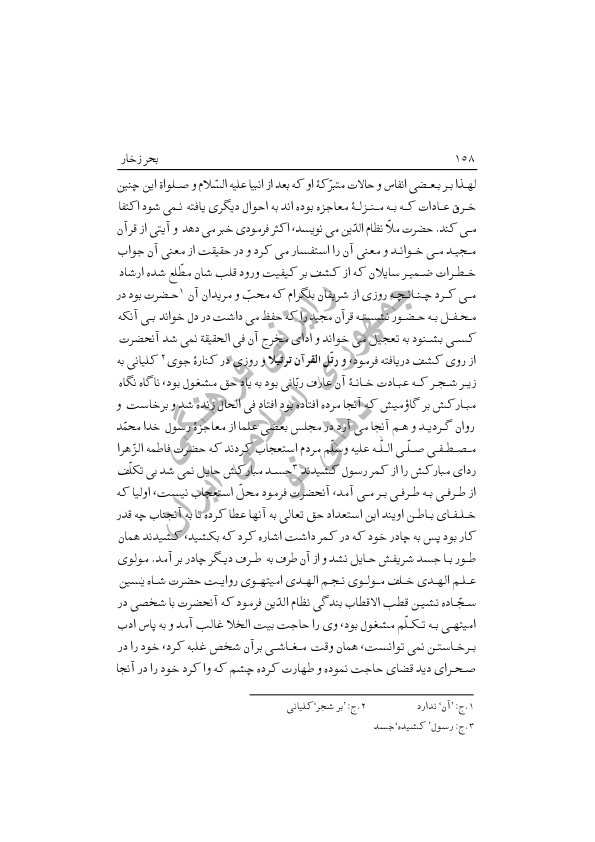 ۱۵۸ بحر زخار
لهذا بر بعضی انفاس و حالات متبرّکۀ او که بعد از انبیا علیه السّلام و صلواة این چنین
خرق عادات که به منزلۀ معاجزه بوده اند به احوال دیگری یافته نمی شود اکتفا
می کند. حضرت ملّا نظام الدّین می نویسد، اکثر فرمودی خبر می دهد و آیتی از قرآن
مجید می خواند و معنی آن را استفسار می کرد و در حقیقت از معنی آن جواب
خطرات ضمیر سایلان که از کشف بر کیفیت ورود قلب شان مطّلع شده ارشاد
می کرد چنانچه روزی از شریفان بلگرام که محبّ و مریدان آن ۱ حضرت بود در
محفل به حضور نشسته قرآن مجید را که حفظ می داشت در دل خواند بی آنکه
کسی بشنود به تعجیل می خواند و ادای مخرج آن فی الحقیقة نمی شد آنحضرت
از روی کشف دریافته فرمود، و رتّل القرآن ترتیلا و روزی در کنارۀ جوی ۲ کلیانی به
زیر شجر که عبادت خانۀ آن عارف ربّانی بود به یاد حق مشغول بود، ناگاه نگاه
مبارکش بر گاؤمیش که آنجا مرده افتاده بود افتاد فی الحال زنده شد و برخاست و
روان گردید و هم آنجا می آرد در مجلس بعضی علما از معاجزۀ رسول خدا محمّد
مصطفی صلّی اللّه علیه وسلّم مردم استعجاب کردند که حضرت فاطمه الزّهرا
ردای مبارکش را از کمر رسول کشیدند ۳ جسد مبارکش حایل نمی شد بی تکلّف
از طرفی به طرفی بر می آمد، آنحضرت فرمود محلّ استعجاب نیست، اولیا که
خلفای باطن اویند این استعداد حق تعالی به آنها عطا کرده تا به آنجناب چه قدر
کار بود پس به چادر خود که در کمر داشت اشاره کرد که بکشید، کشیدند همان
طور با جسد شریفش حایل نشد و از آن طرف به طرف دیگر چادر بر آمد. مولوی
علم الهدی خلف مولوی نجم الهدی امیتهوی روایت حضرت شاه یٰسین
سجّاده نشین قطب الاقطاب بندگی نظام الدّین فرمود که آنحضرت با شخصی در
امیتهی به تکلّم مشغول بود، وی را حاجت بیت الخلا غالب آمد و به پاس ادب
برخاستن نمی توانست، همان وقت مغاشی بر آن شخص غلبه کرد، خود را در
صحرای دید قضای حاجت نموده و طهارت کرده چشم که وا کرد خود را در آنجا
۱.ج: ’آن‘ ندارد ۲.ج: ’بر شجر‘ کلیانی
۳.ج: رسول ’کشیده‘ جسد
رایزنی فرهنگی
جمهوری اسلامی ایران
دهلی نو